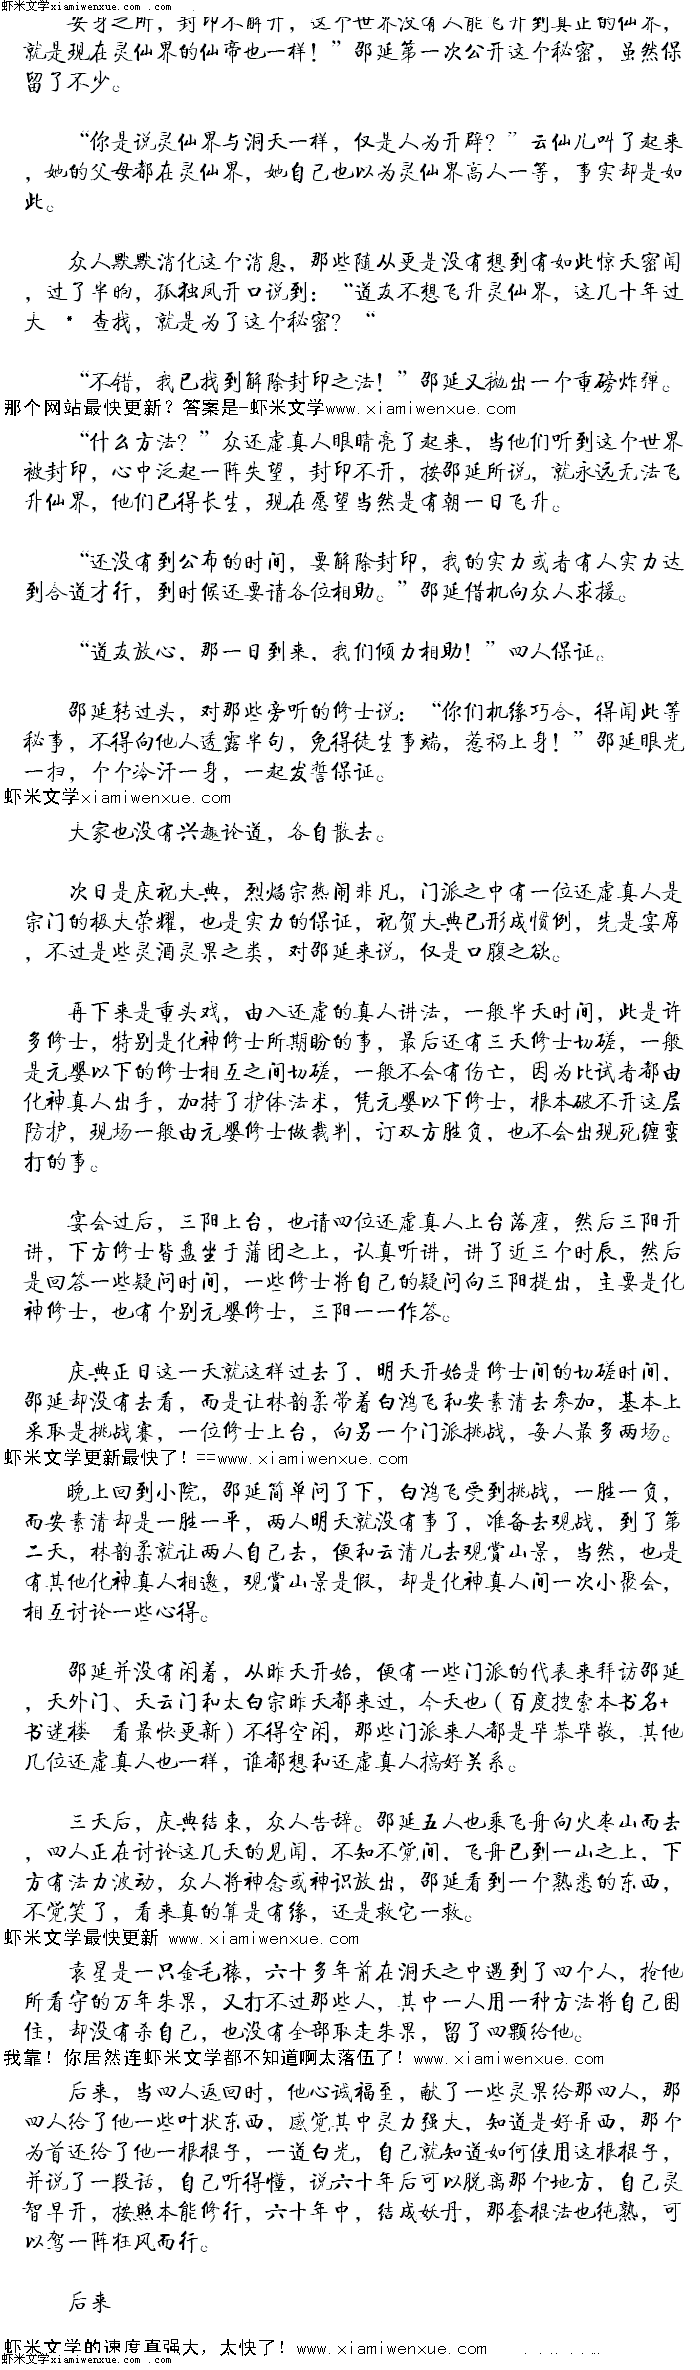 虾米文学xiamiwenxue.com .com
安身之所，封印不解开，这个世界没有人能飞升到真正的仙界，
就是现在灵仙界的仙帝也一样！”邵延第一次公开这个秘密，虽然保
留了不少。
“你是说灵仙界与洞天一样，仅是人为开辟？”云仙儿叫了起来
，她的父母都在灵仙界，她自己也以为灵仙界高人一等，事实却是如
此。
众人默默消化这个消息，那些随从更是没有想到有如此惊天密闻
，过了半晌，孤独凤开口说到：“道友不想飞升灵仙界，这几十年过
大 * 查找，就是为了这个秘密？“
“不错，我已找到解除封印之法！”邵延又抛出一个重磅炸弹。
那个网站最快更新？答案是-虾米文学www.xiamiwenxue.com
“什么方法？”众还虚真人眼睛亮了起来，当他们听到这个世界
被封印，心中泛起一阵失望，封印不开，按邵延所说，就永远无法飞
升仙界，他们已得长生，现在愿望当然是有朝一日飞升。
“还没有到公布的时间，要解除封印，我的实力或者有人实力达
到合道才行，到时候还要请各位相助。”邵延借机向众人求援。
“道友放心，那一日到来，我们倾力相助！”四人保证。
邵延转过头，对那些旁听的修士说：“你们机缘巧合，得闻此等
秘事，不得向他人透露半句，免得徒生事端，惹祸上身！”邵延眼光
一扫，个个冷汗一身，一起发誓保证。
虾米文学xiamiwenxue.com
大家也没有兴趣论道，各自散去。
次日是庆祝大典，烈焰宗热闹非凡，门派之中有一位还虚真人是
宗门的极大荣耀，也是实力的保证，祝贺大典已形成惯例，先是宴席
，不过是些灵酒灵果之类，对邵延来说，仅是口腹之欲。
再下来是重头戏，由入还虚的真人讲法，一般半天时间，此是许
多修士，特别是化神修士所期盼的事，最后还有三天修士切磋，一般
是元婴以下的修士相互之间切磋，一般不会有伤亡，因为比试者都由
化神真人出手，加持了护体法术，凭元婴以下修士，根本破不开这层
防护，现场一般由元婴修士做裁判，订双方胜负，也不会出现死缠蛮
打的事。
宴会过后，三阳上台，也请四位还虚真人上台落座，然后三阳开
讲，下方修士皆盘坐于蒲团之上，认真听讲，讲了近三个时辰，然后
是回答一些疑问时间，一些修士将自己的疑问向三阳提出，主要是化
神修士，也有个别元婴修士，三阳一一作答。
庆典正日这一天就这样过去了，明天开始是修士间的切磋时间，
邵延却没有去看，而是让林韵柔带着白鸿飞和安素清去参加，基本上
采取是挑战赛，一位修士上台，向另一个门派挑战，每人最多两场。
虾米文学更新最快了！==www.xiamiwenxue.com
晚上回到小院，邵延简单问了下，白鸿飞受到挑战，一胜一负，
而安素清却是一胜一平，两人明天就没有事了，准备去观战，到了第
二天，林韵柔就让两人自己去，便和云清儿去观赏山景，当然，也是
有其他化神真人相邀，观赏山景是假，却是化神真人间一次小聚会，
相互讨论一些心得。
邵延并没有闲着，从昨天开始，便有一些门派的代表来拜访邵延
，天外门、天云门和太白宗昨天都来过，今天也（百度搜索本书名+
书迷楼 看最快更新）不得空闲，那些门派来人都是毕恭毕敬，其他
几位还虚真人也一样，谁都想和还虚真人搞好关系。
三天后，庆典结束，众人告辞。邵延五人也乘飞舟向火枣山而去
，四人正在讨论这几天的见闻，不知不觉间，飞舟已到一山之上，下
方有法力波动，众人将神念或神识放出，邵延看到一个熟悉的东西，
不觉笑了，看来真的算是有缘，还是救它一救。
虾米文学最快更新 www.xiamiwenxue.com
袁星是一只金毛猿，六十多年前在洞天之中遇到了四个人，抢他
所看守的万年朱果，又打不过那些人，其中一人用一种方法将自己困
住，却没有杀自己，也没有全部取走朱果，留了四颗给他。
我靠！你居然连虾米文学都不知道啊太落伍了！www.xiamiwenxue.com
后来，当四人返回时，他心诚福至，献了一些灵果给那四人，那
四人给了他一些叶状东西，感觉其中灵力强大，知道是好弄西，那个
为首还给了他一根棍子，一道白光，自己就知道如何使用这根棍子，
并说了一段话，自己听得懂，说六十年后可以脱离那个地方，自己灵
智早开，按照本能修行，六十年中，结成妖丹，那套棍法也纯熟，可
以驾一阵狂风而行。
后来
虾米文学的速度真强大，太快了！www.xiamiwenxue.com
虾米文学xiamiwenxue.com .com